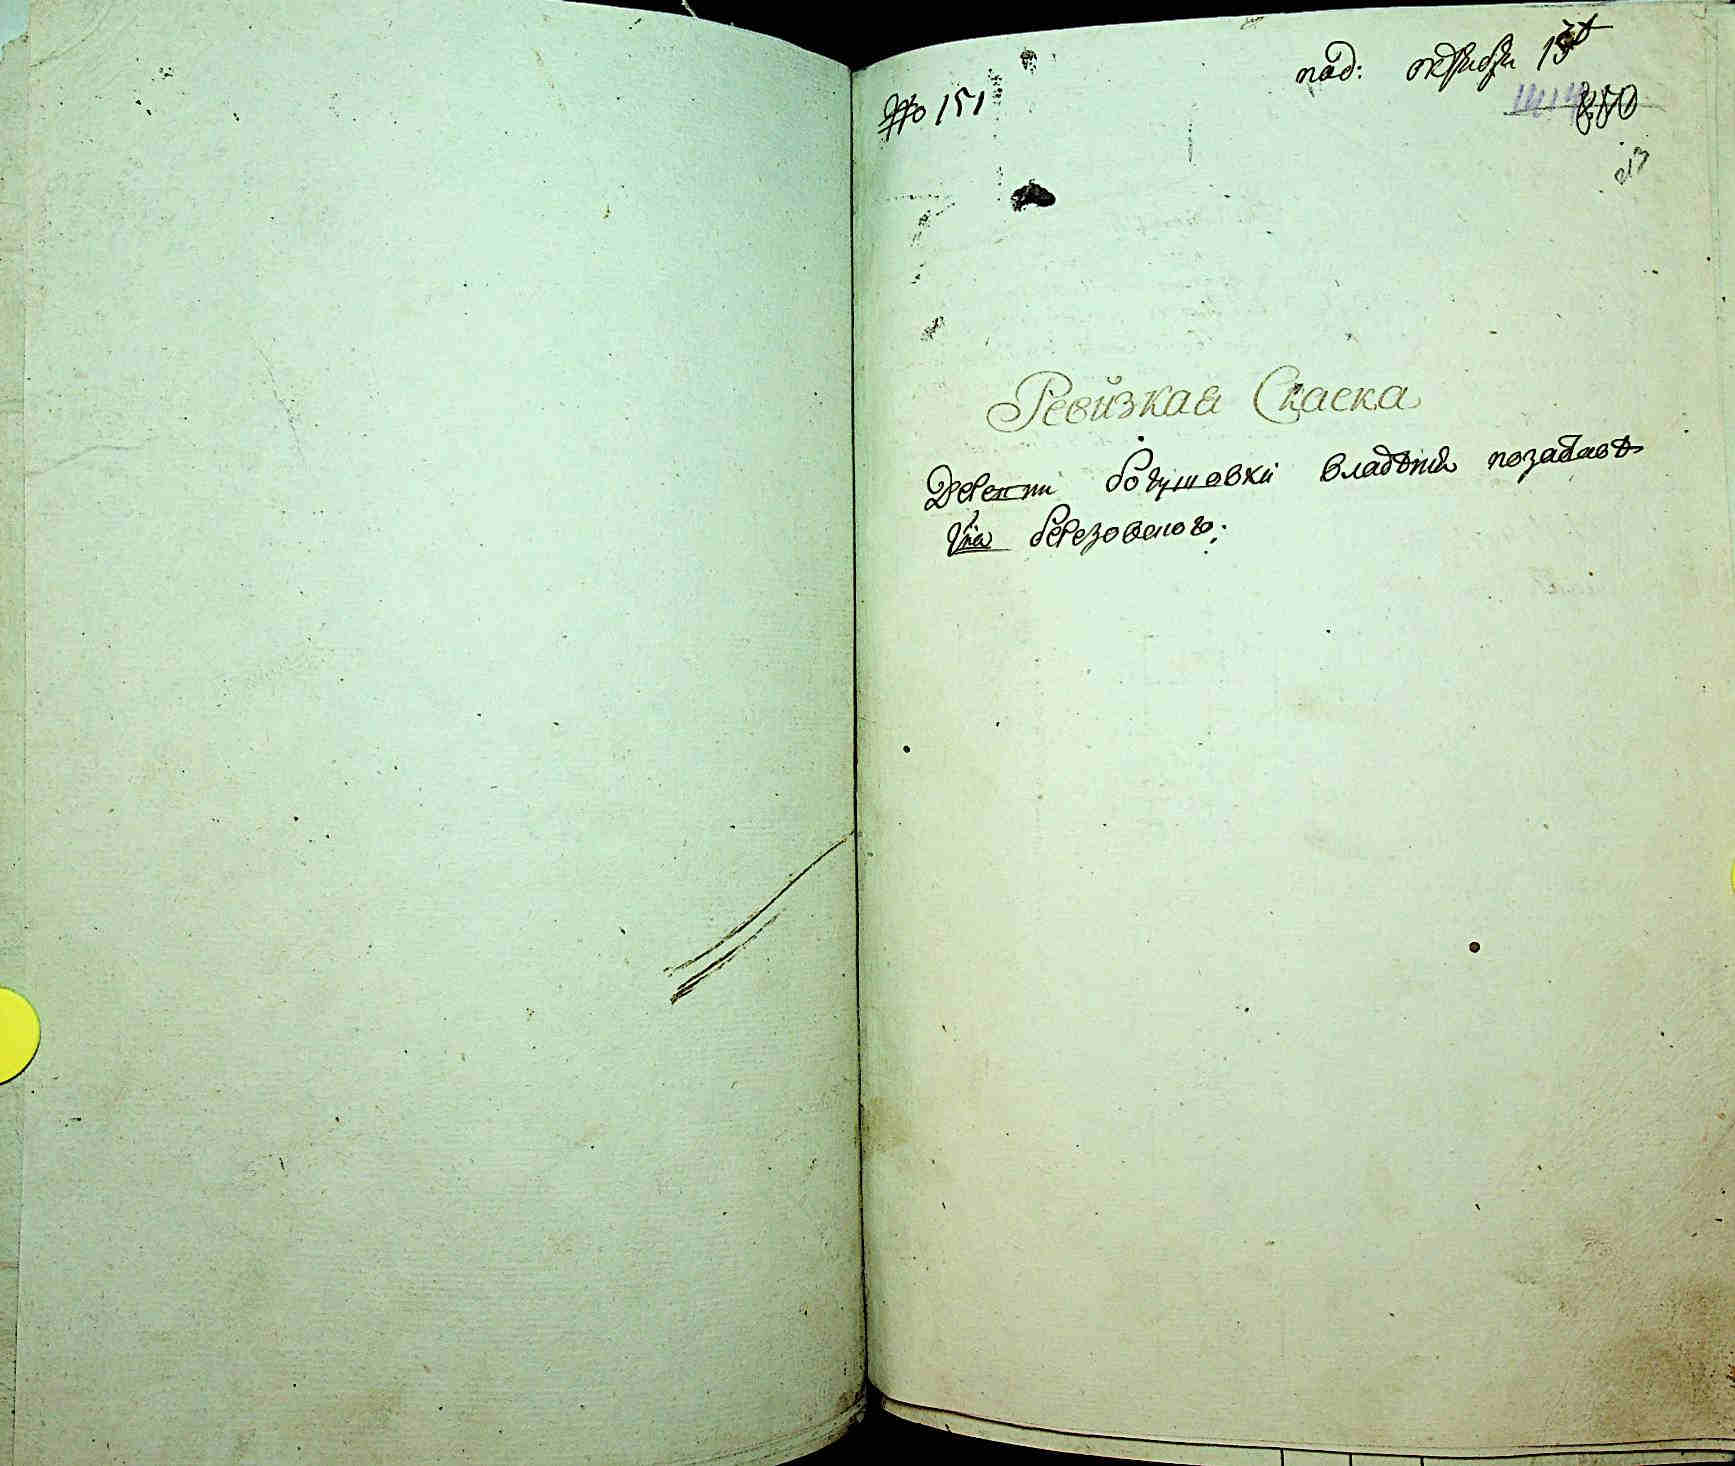 № 151
под: октября 13
850
213
Ревизкая Скаска
Деревни богушовки владѣния
березовского: